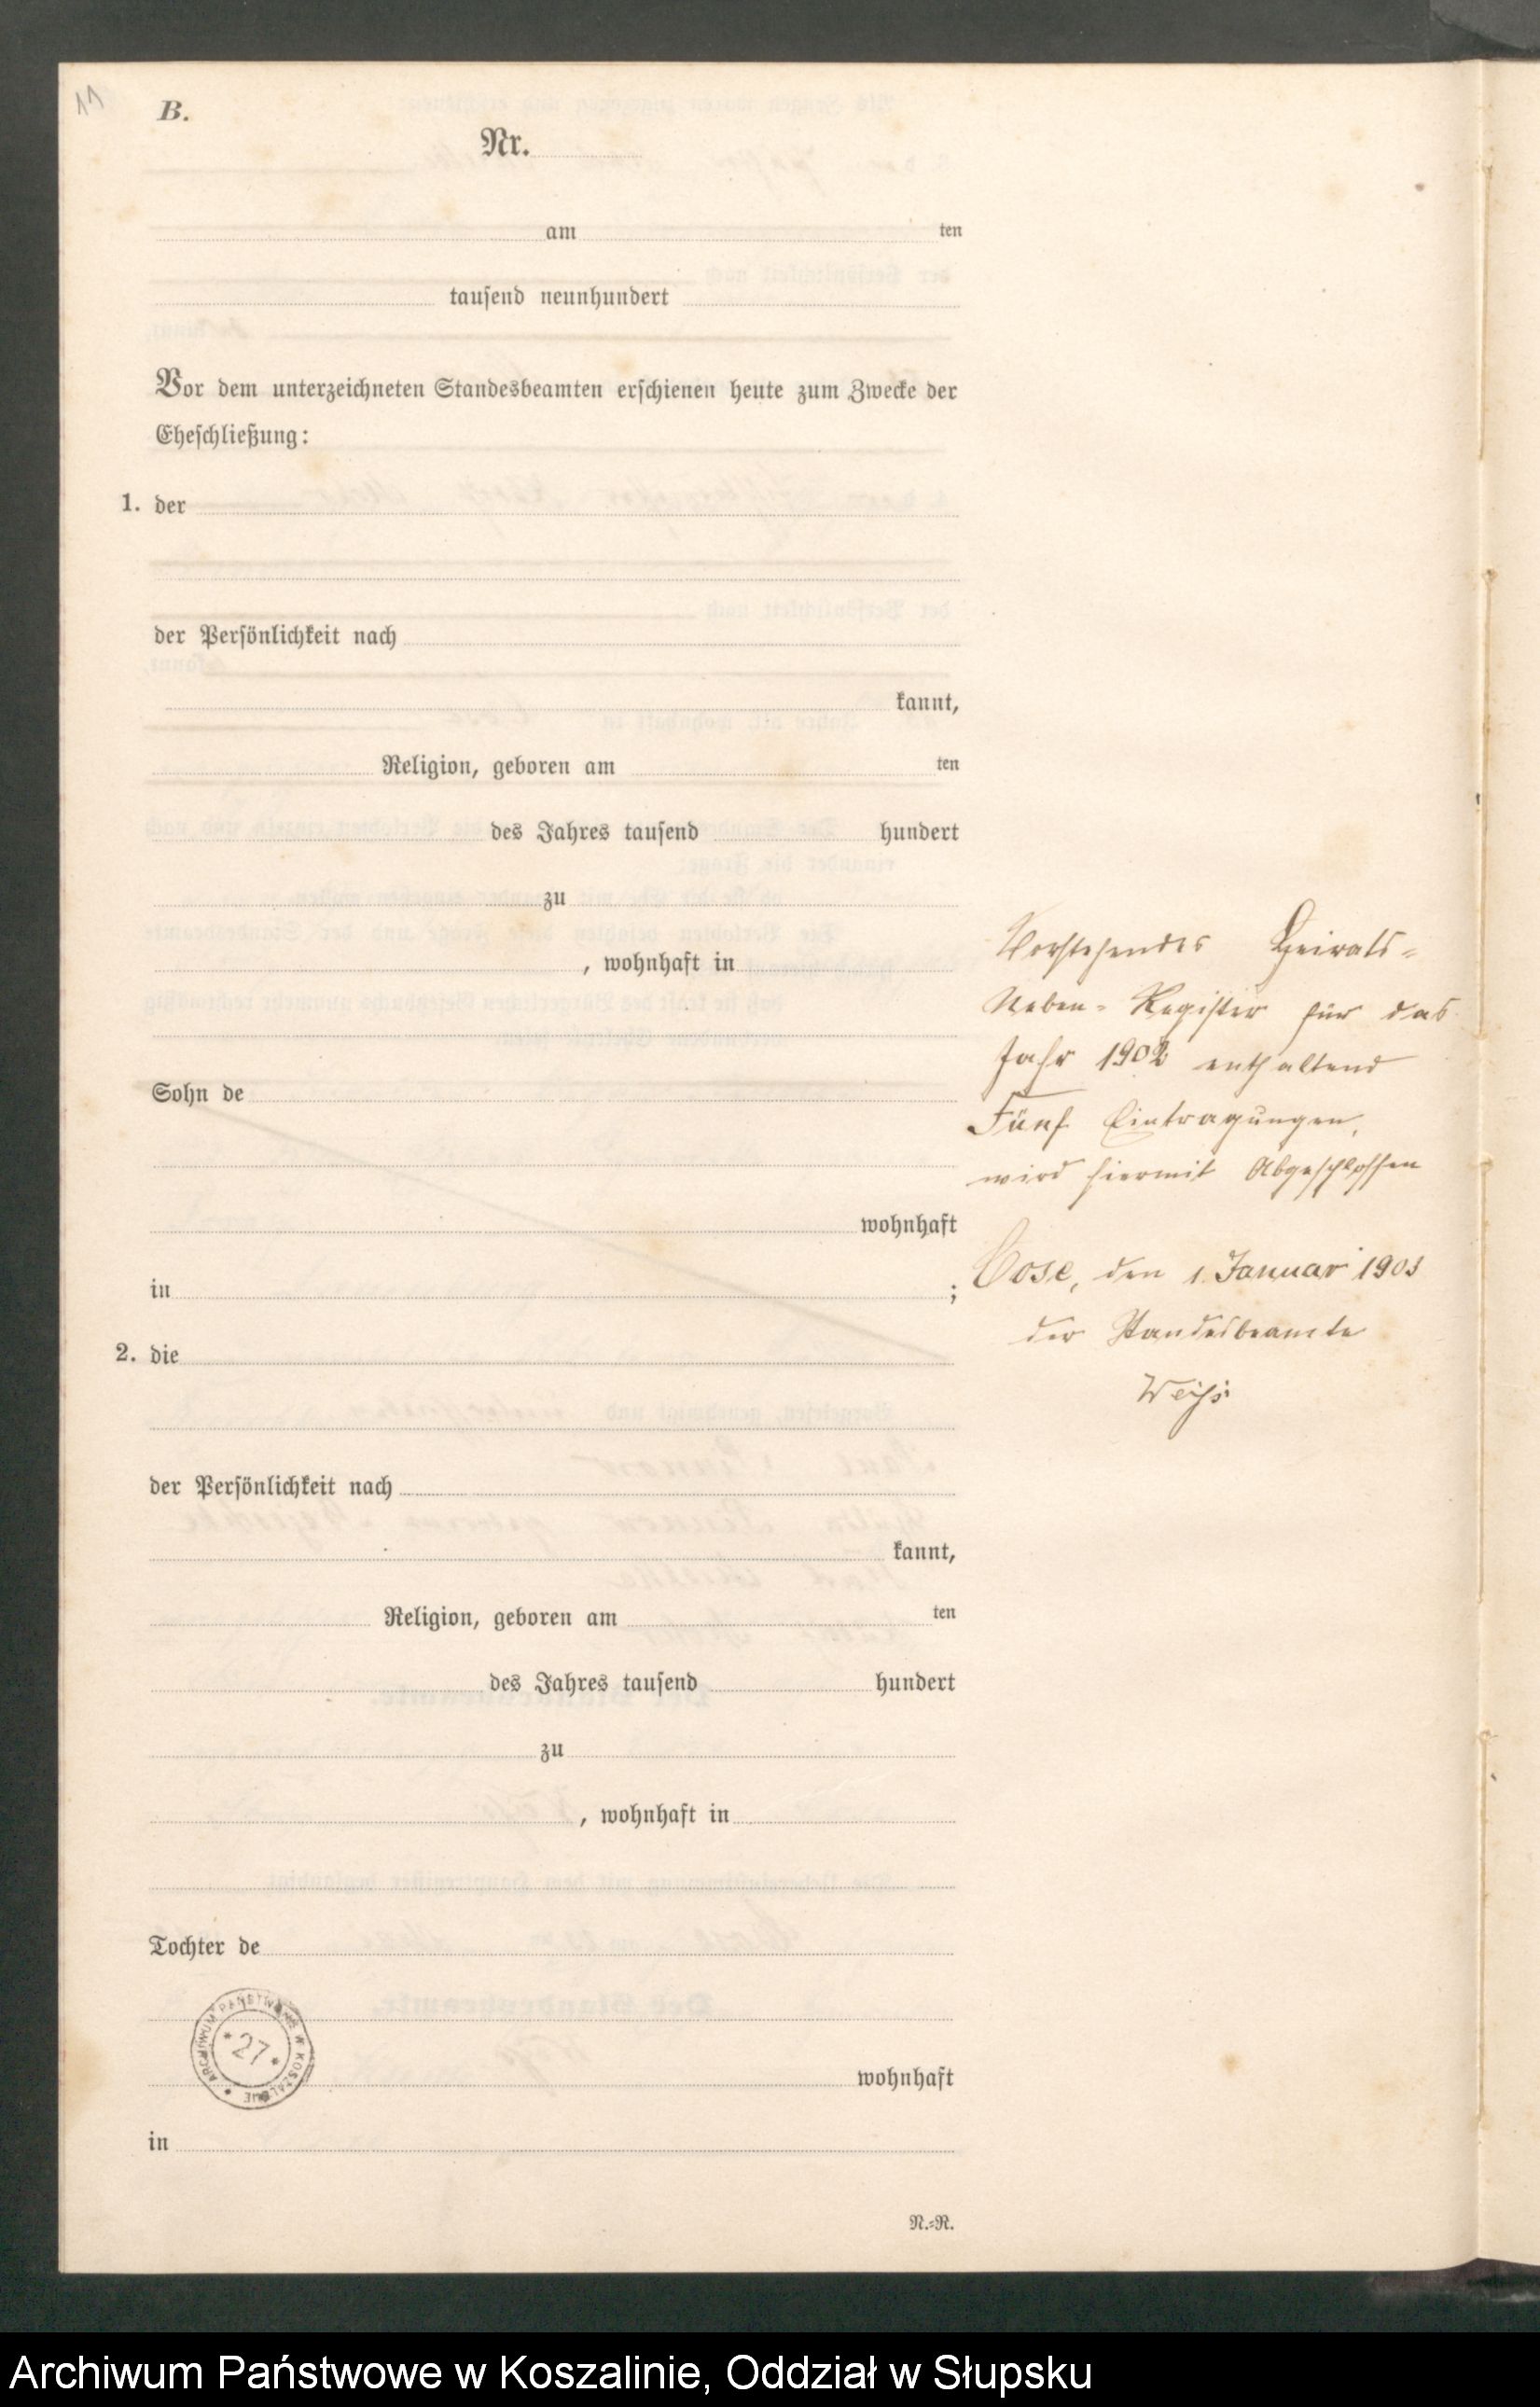 11
B.
Nr.
am ten
tausend neunhundert
Vor dem unterzeichneten Standesbeamten erschienen heute zum Zwecke der
Eheschließung:
1. der
der Persönlichkeit nach
kannt,
Religion, geboren am ten
des Jahres tausend hundert
zu
, wohnhaft in
Sohn de
wohnhaft
in ;
2. die
der Persönlichkeit nach
kannt,
Religion, geboren am ten
des Jahres tausend hundert
zu
, wohnhaft in
Tochter de
wohnhaft
in
N.=R.
Vorstehendes Heirats=
Neben=Register für das
Jahr 1902 enthaltend
Fünf Eintragungen,
wird hiermit Abgeschlossen
Cose, den 1. Januar 1903
der Standesbeamte
ARCHIWUM PAŃSTWOWE W KOSZALINIE
*27*
Archiwum Państwowe w Koszalinie, Oddział w Słupsku